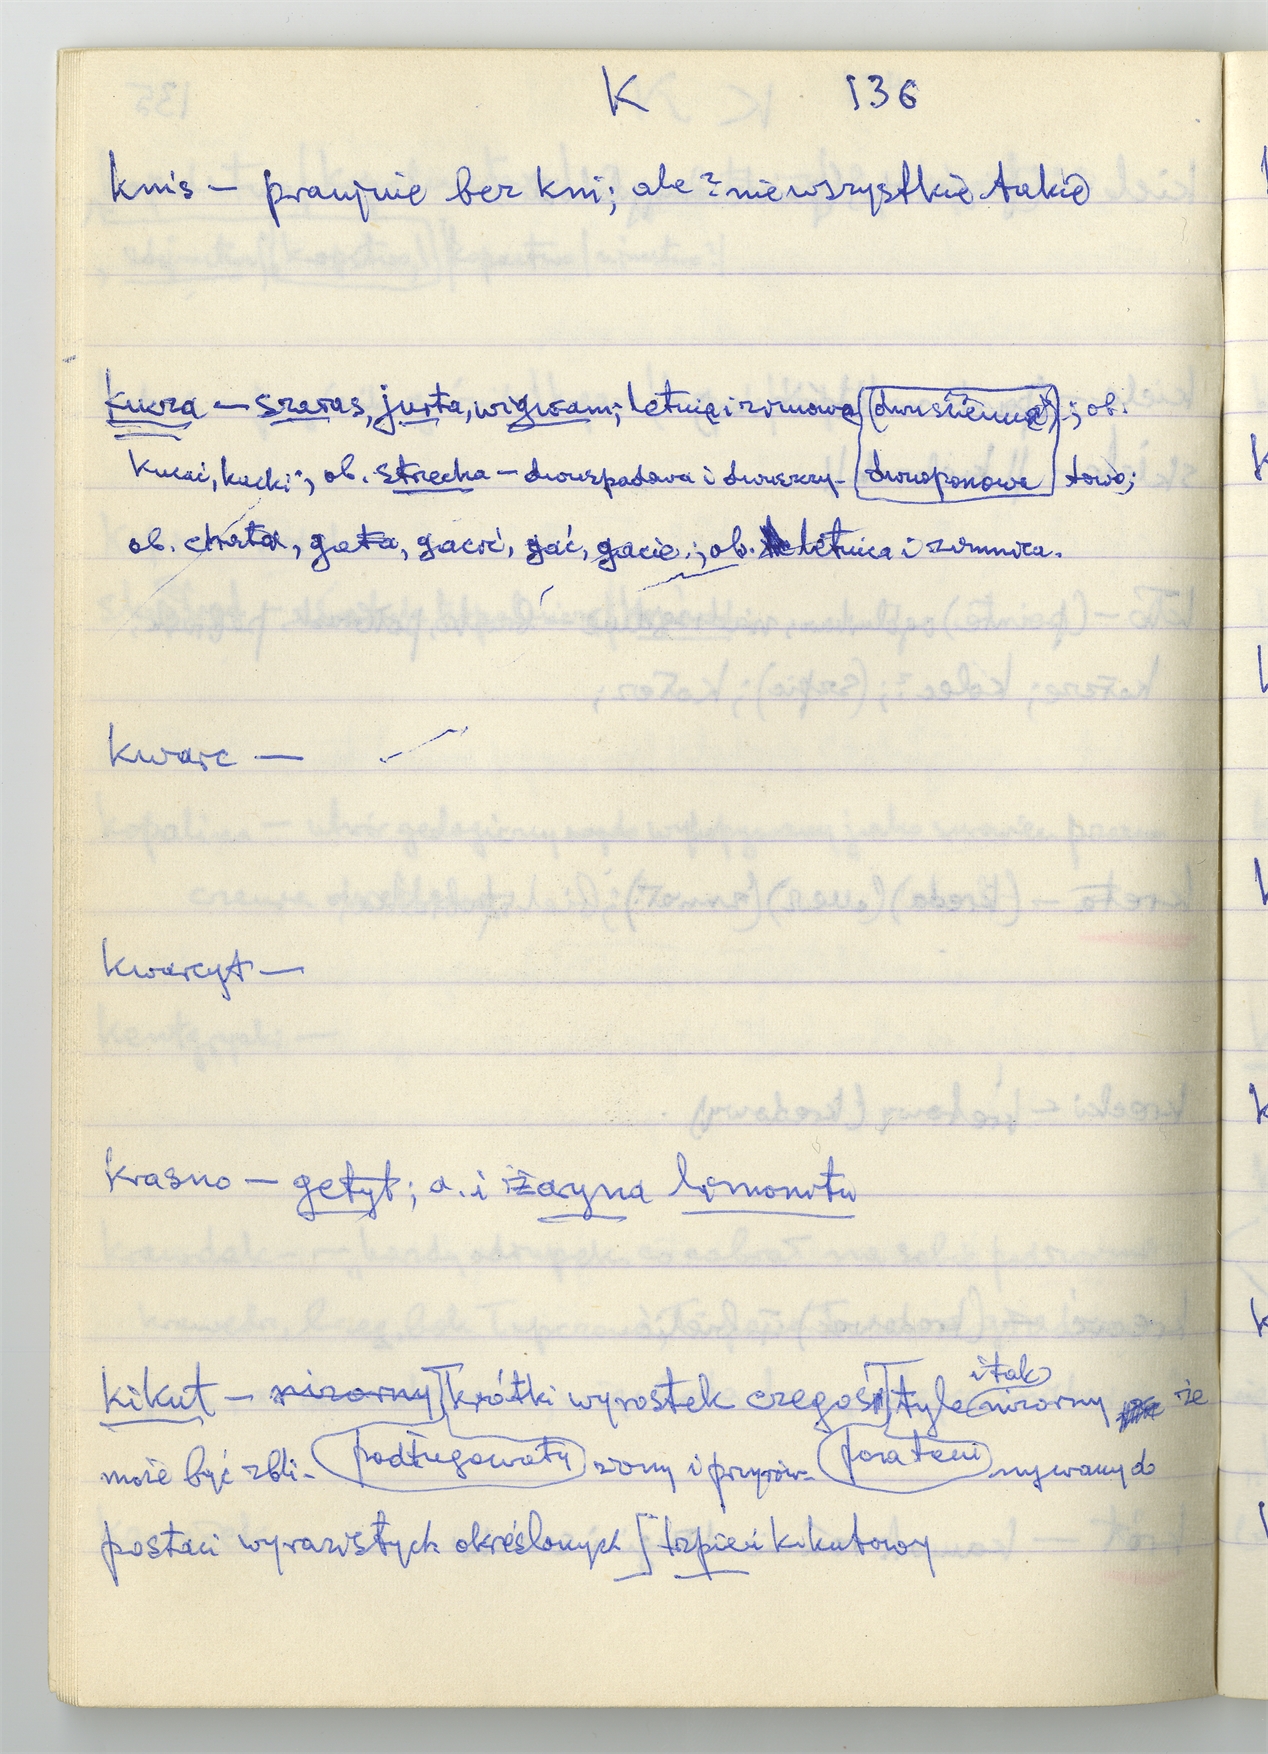 K 136
knis — prawnie bez kni; ale ? nie wszystkie takie
kucza — szałas, jurta, wigwam; letnia i zimowa (dwuścienna); ob.
kucać, kucki; ob. strzecha — dwuspadowa i dwuskrzy- dwuponowa towa;
ob. chata, gata, gacić, gać, gacie; ob. letnica i zimnica.
kwarc —
kwarcyt —
krasno — getyt; a. i żaryna limonitu
kikut — nizorny krótki wyrostek czegoś tyle i tak nizorny że
może być zbli- podługowaty żony i przyrów- nywany do
postaci wyrazistych określonych trzpień kikutowy